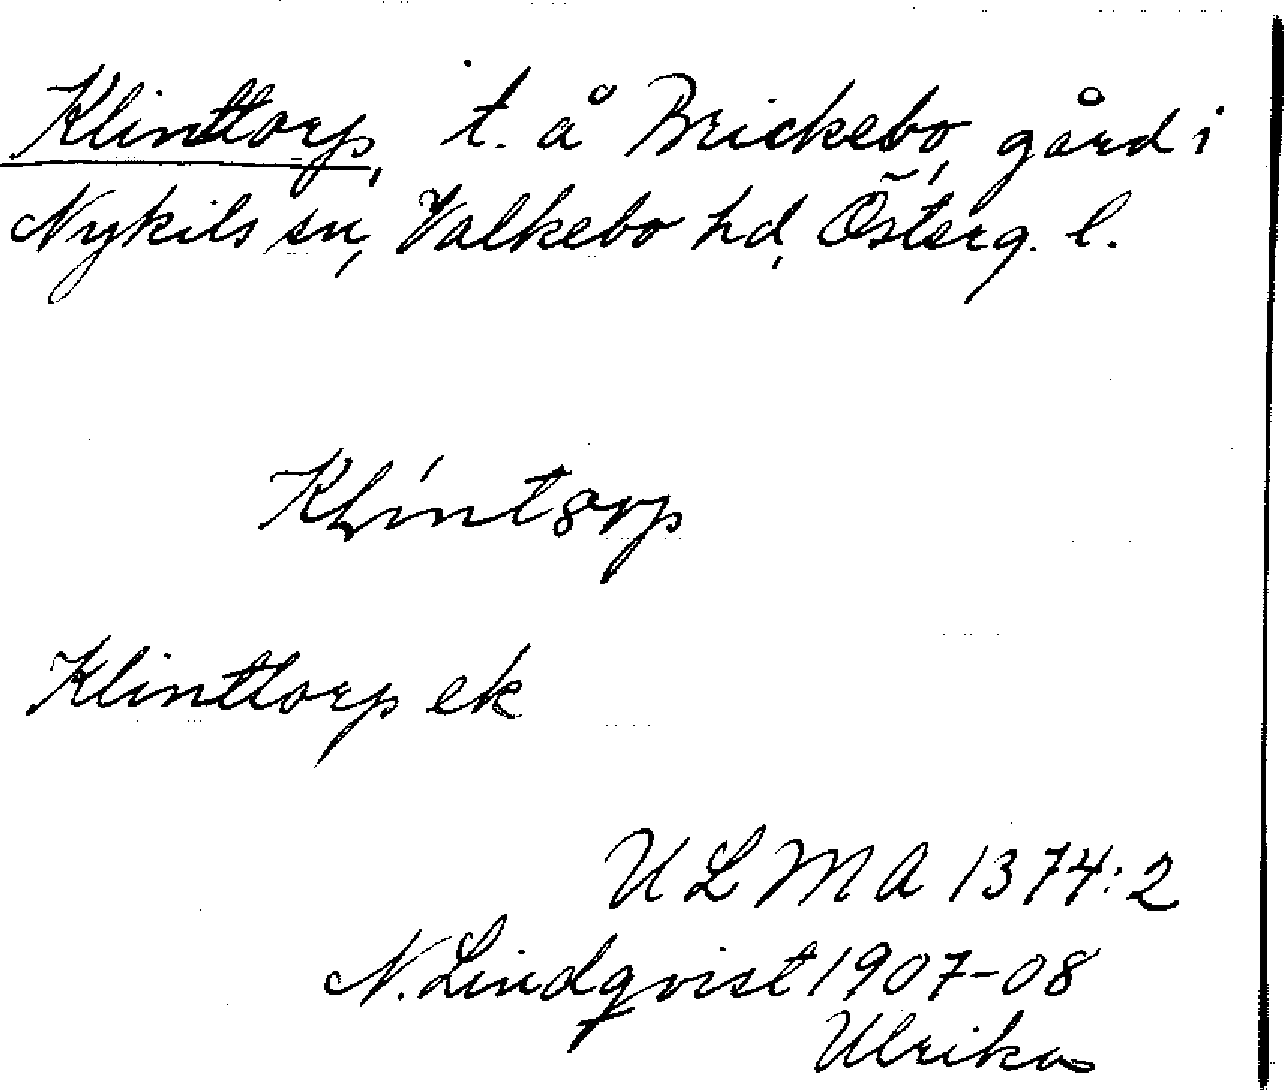 Klinttorp, t. å Brickebo, gård i
Nykils sn, Valkebo hd, Österg. l.
Klinttorp ek
ULMA 1374:2
N. Lindqvist 1907-08
Ulrika